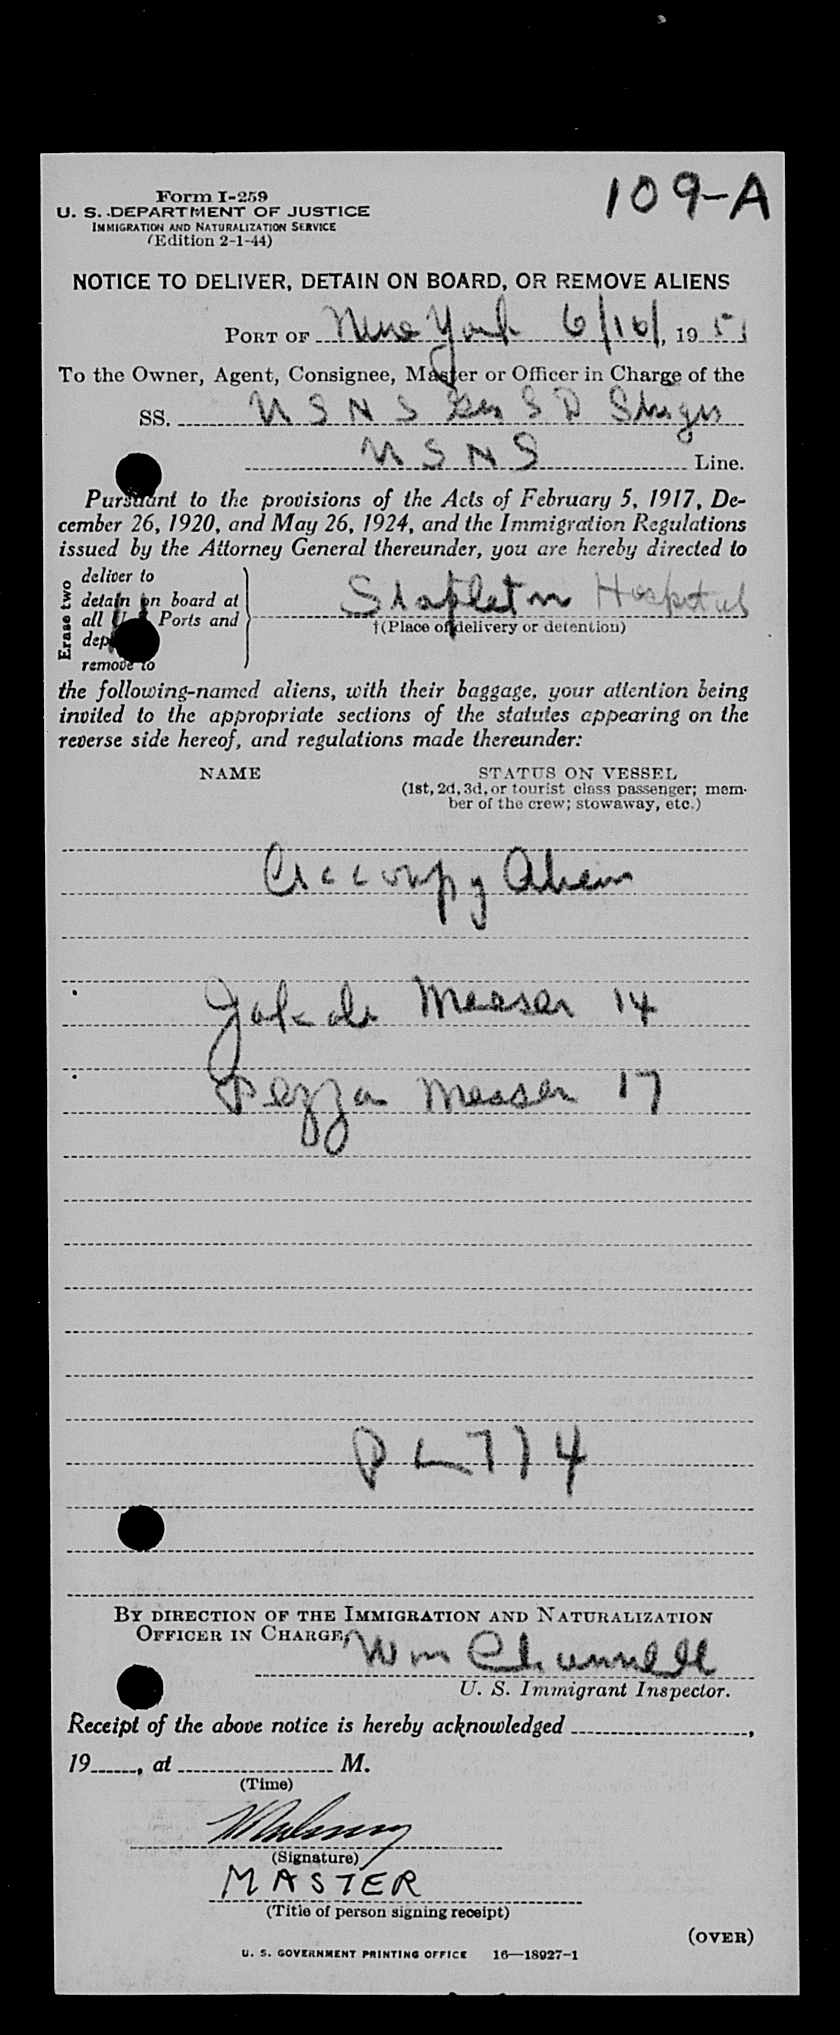 109-A
Form I-259
U. S. DEPARTMENT OF JUSTICE
IMMIGRATION AND NATURALIZATION SERVICE
(Edition 2-1-44)
NOTICE TO DELIVER, DETAIN ON BOARD, OR REMOVE ALIENS
PORT OF New York 6/16/, 1951
To the Owner, Agent, Consignee, Master or Officer in Charge of the
SS. U S N S Gen S D Sturgis
U S N S Line.
Pursuant to the provisions of the Acts of February 5, 1917, De-
cember 26, 1920, and May 26, 1924, and the Immigration Regulations
issued by the Attorney General thereunder, you are hereby directed to
Erase two
deliver to
detain on board at
all U. S. Ports and
remove to
Stapleton Hospital
†(Place of delivery or detention)
the following-named aliens, with their baggage, your attention being
invited to the appropriate sections of the statutes appearing on the
reverse side hereof, and regulations made thereunder:
NAME STATUS ON VESSEL
(1st, 2d, 3d, or tourist class passenger; mem-
ber of the crew; stowaway, etc.)
Accompy Alien
Meeser 14
Pezza Meeser 17
P L 774
BY DIRECTION OF THE IMMIGRATION AND NATURALIZATION
OFFICER IN CHARGE,
Wm Channell
U. S. Immigrant Inspector.
Receipt of the above notice is hereby acknowledged ,
19 , at M.
(Time)
(Signature)
MASTER
(Title of person signing receipt)
(OVER)
U. S. GOVERNMENT PRINTING OFFICE 16—18927-1